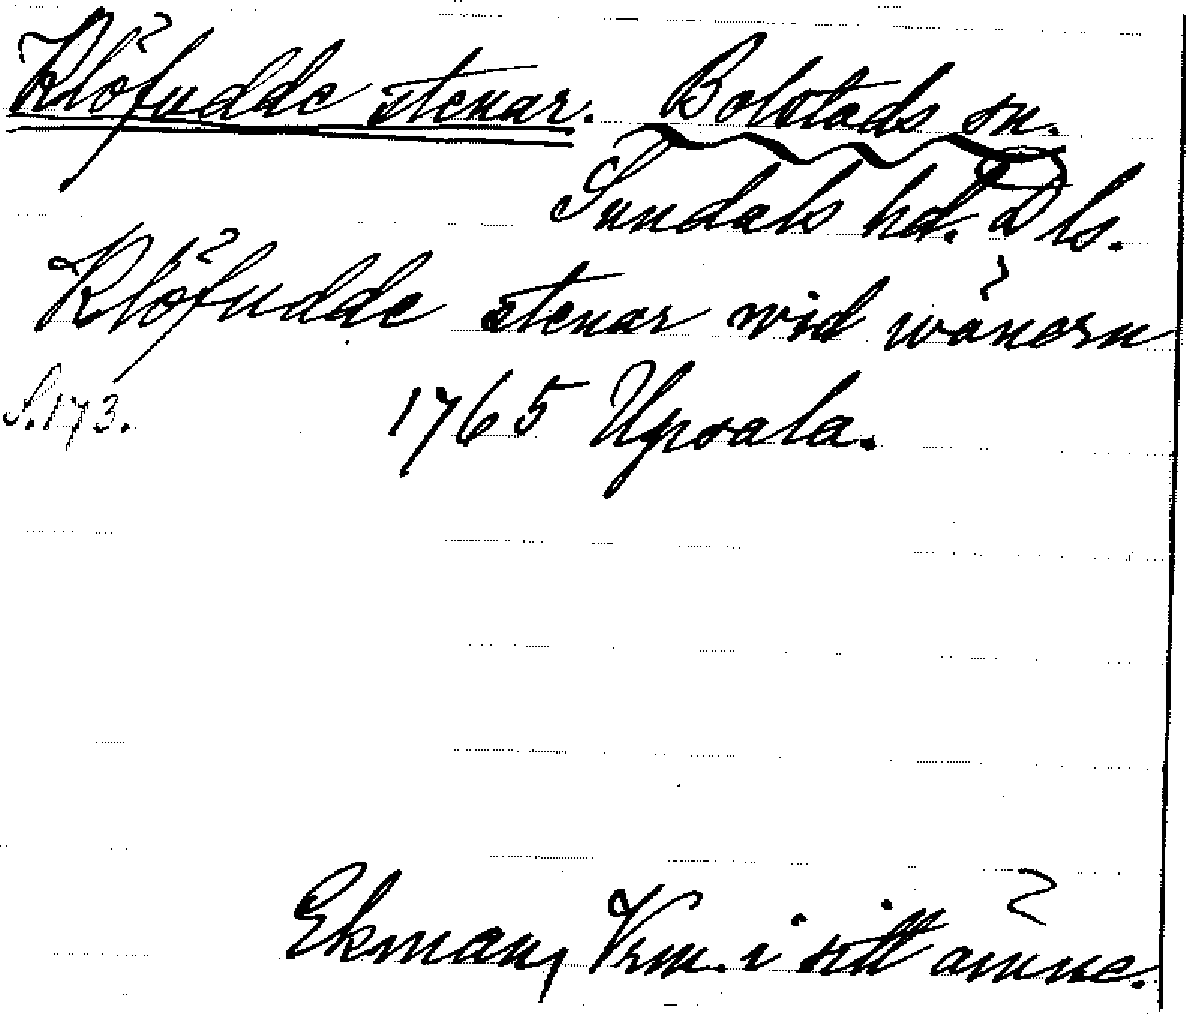 Klöfudde stenar. Bolstads sn.
Sundals hd. Dls.
Klöfudde stenar wid wänern
S. 173. 1765 Upsala.
Ekman, Vrm. i sitt ämne.